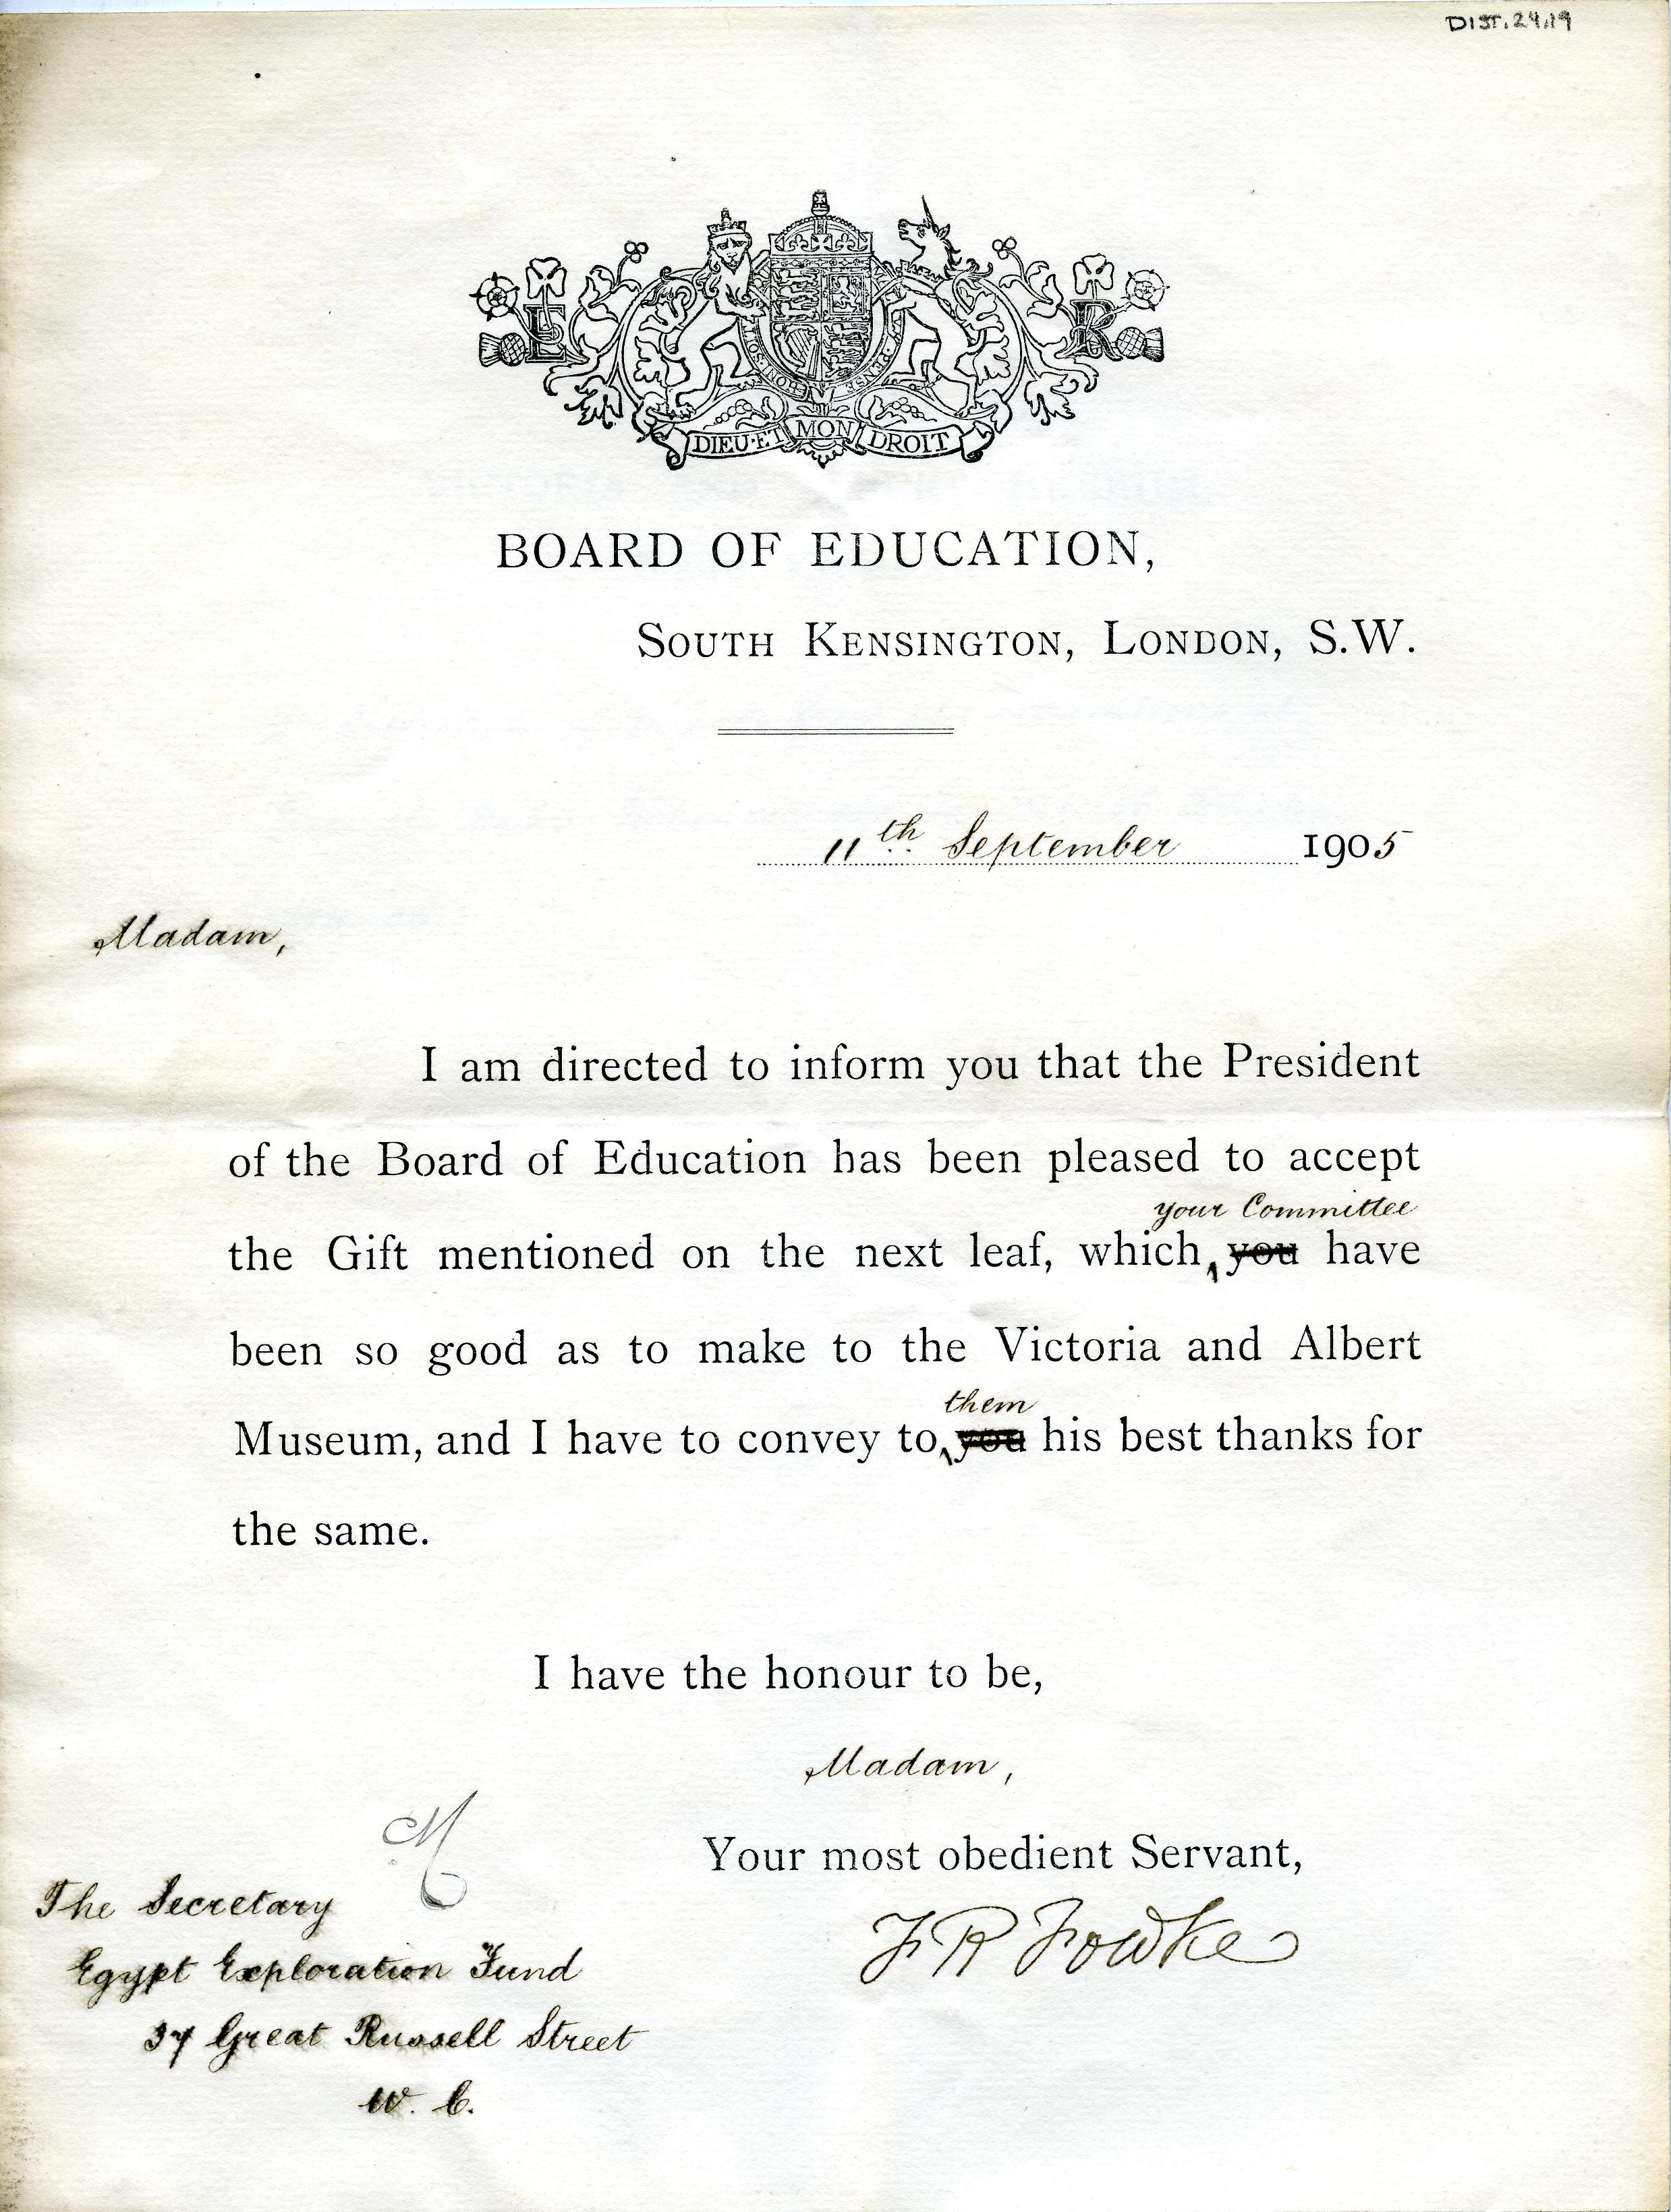 DIST.24.19
E R
HONI·SOIT
PENSE
DIEU·ET MON DROIT
BOARD OF EDUCATION,
SOUTH KENSINGTON, LONDON, S.W.
11th September 1905
Madam,
I am directed to inform you that the President
of the Board of Education has been pleased to accept
your Committee
the Gift mentioned on the next leaf, which, you have
been so good as to make to the Victoria and Albert
them
Museum, and I have to convey to you his best thanks for
the same.
I have the honour to be,
Madam,
Your most obedient Servant,
F R Fowke
The Secretary
Egypt Exploration Fund
37 Great Russell Street
W. C.